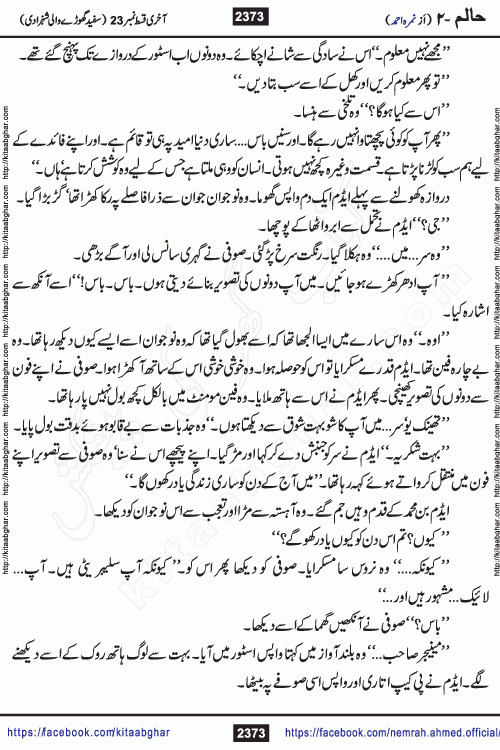 حالم -۲ (از نمرہ احمد) 2373 آخری قسط نمبر 23 (سفید گھوڑے والی شہزادی)
”مجھے نہیں معلوم۔“ اس نے سادگی سے شانے اچکائے۔ وہ دونوں اب اسٹور کے دروازے تک پہنچ گئے تھے۔
”تو پھر معلوم کریں اور کھل کے اسے سب بتا دیں۔“
”اس سے کیا ہوگا؟“ وہ تلخی سے ہنسا۔
”پھر آپ کو کوئی پچھتاوا نہیں رہے گا۔ اور سنیں باس.... ساری دنیا امید پہ ہی تو قائم ہے۔ اور اپنے فائدے کے
لیے ہم سب کو لڑنا پڑتا ہے۔ قسمت وغیرہ کچھ نہیں ہوتی۔ انسان کو وہی ملتا ہے جس کے لیے وہ کوشش کرتا ہے‘ ہاں۔“
دروازہ کھولنے سے پہلے ایڈم ایک دم واپس گھوما۔ وہ نوجوان جو ان سے ذرا فاصلے پہ رکا کھڑا تھا‘ گڑبڑا گیا۔
”جی؟“ ایڈم نے تحمل سے ابرو اٹھا کے پوچھا۔
”وہ سر... میں....“ وہ ہکلا گیا۔ رنگت سرخ پڑ گئی۔ صوفی نے گہری سانس لی اور آگے بڑھی۔
”آپ ادھر کھڑے ہو جائیں۔ میں آپ دونوں کی تصویر بنائے دیتی ہوں۔ باس۔ باس!“ اسے آنکھ سے
اشارہ کیا۔
”اوہ۔“ وہ اس سارے میں ایسا الجھا تھا کہ اسے بھول گیا تھا کہ وہ نوجوان اسے ایسے کیوں دیکھ رہا تھا۔ وہ
بے چارہ فین تھا۔ ایڈم قدرے مسکرایا تو اس کو حوصلہ ہوا۔ وہ خوشی خوشی اس کے ساتھ آ کھڑا ہوا۔ صوفی نے اپنے فون
سے دونوں کی تصویر کھینچی۔ پھر ایڈم نے اس سے ہاتھ ملایا۔ وہ فین مومنٹ میں بالکل کچھ بول نہیں پا رہا تھا۔
”تھینک یو سر... میں آپ کا شو بہت شوق سے دیکھتا ہوں۔“ وہ جذبات سے بے قابو ہوئے بدقت بول پایا۔
”بہت شکریہ۔“ ایڈم نے سر کو جنبش دے کر کہا اور مڑ گیا۔ اپنے پیچھے اس نے سنا‘ وہ صوفی سے تصویر اپنے
فون میں منتقل کرواتے ہوئے کہہ رہا تھا۔ ”میں آج کے دن کو ساری زندگی یاد رکھوں گا۔“
ایڈم بن محمد کے قدم وہیں جم گئے۔ وہ آہستہ سے مڑا اور تعجب سے اس نوجوان کو دیکھا۔
”کیوں؟ تم اس دن کو کیوں یاد رکھو گے؟“
”کیونکہ....“ وہ نروس سا مسکرایا۔ صوفی کو دیکھا پھر اس کو۔ ”کیونکہ آپ سلیبریٹی ہیں۔ آپ...
لائیک... مشہور ہیں اور...“
”باس؟“ صوفی نے آنکھیں گھما کے اسے دیکھا۔
”مینیجر صاحب...“ وہ بلند آواز میں کہتا واپس اسٹور میں آیا۔ بہت سے لوگ ہاتھ روک کے اسے دیکھنے
لگے۔ ایڈم نے پی کیپ اتاری اور واپس اسی صوفے پہ بیٹھا۔
https://facebook.com/kitaabghar 2373 https://facebook.com/nemrah.ahmed.official/
http://kitaabghar.com http://kitaabghar.com http://kitaabghar.com http://kitaabghar.com
http://kitaabghar.com http://kitaabghar.com http://kitaabghar.com http://kitaabghar.com